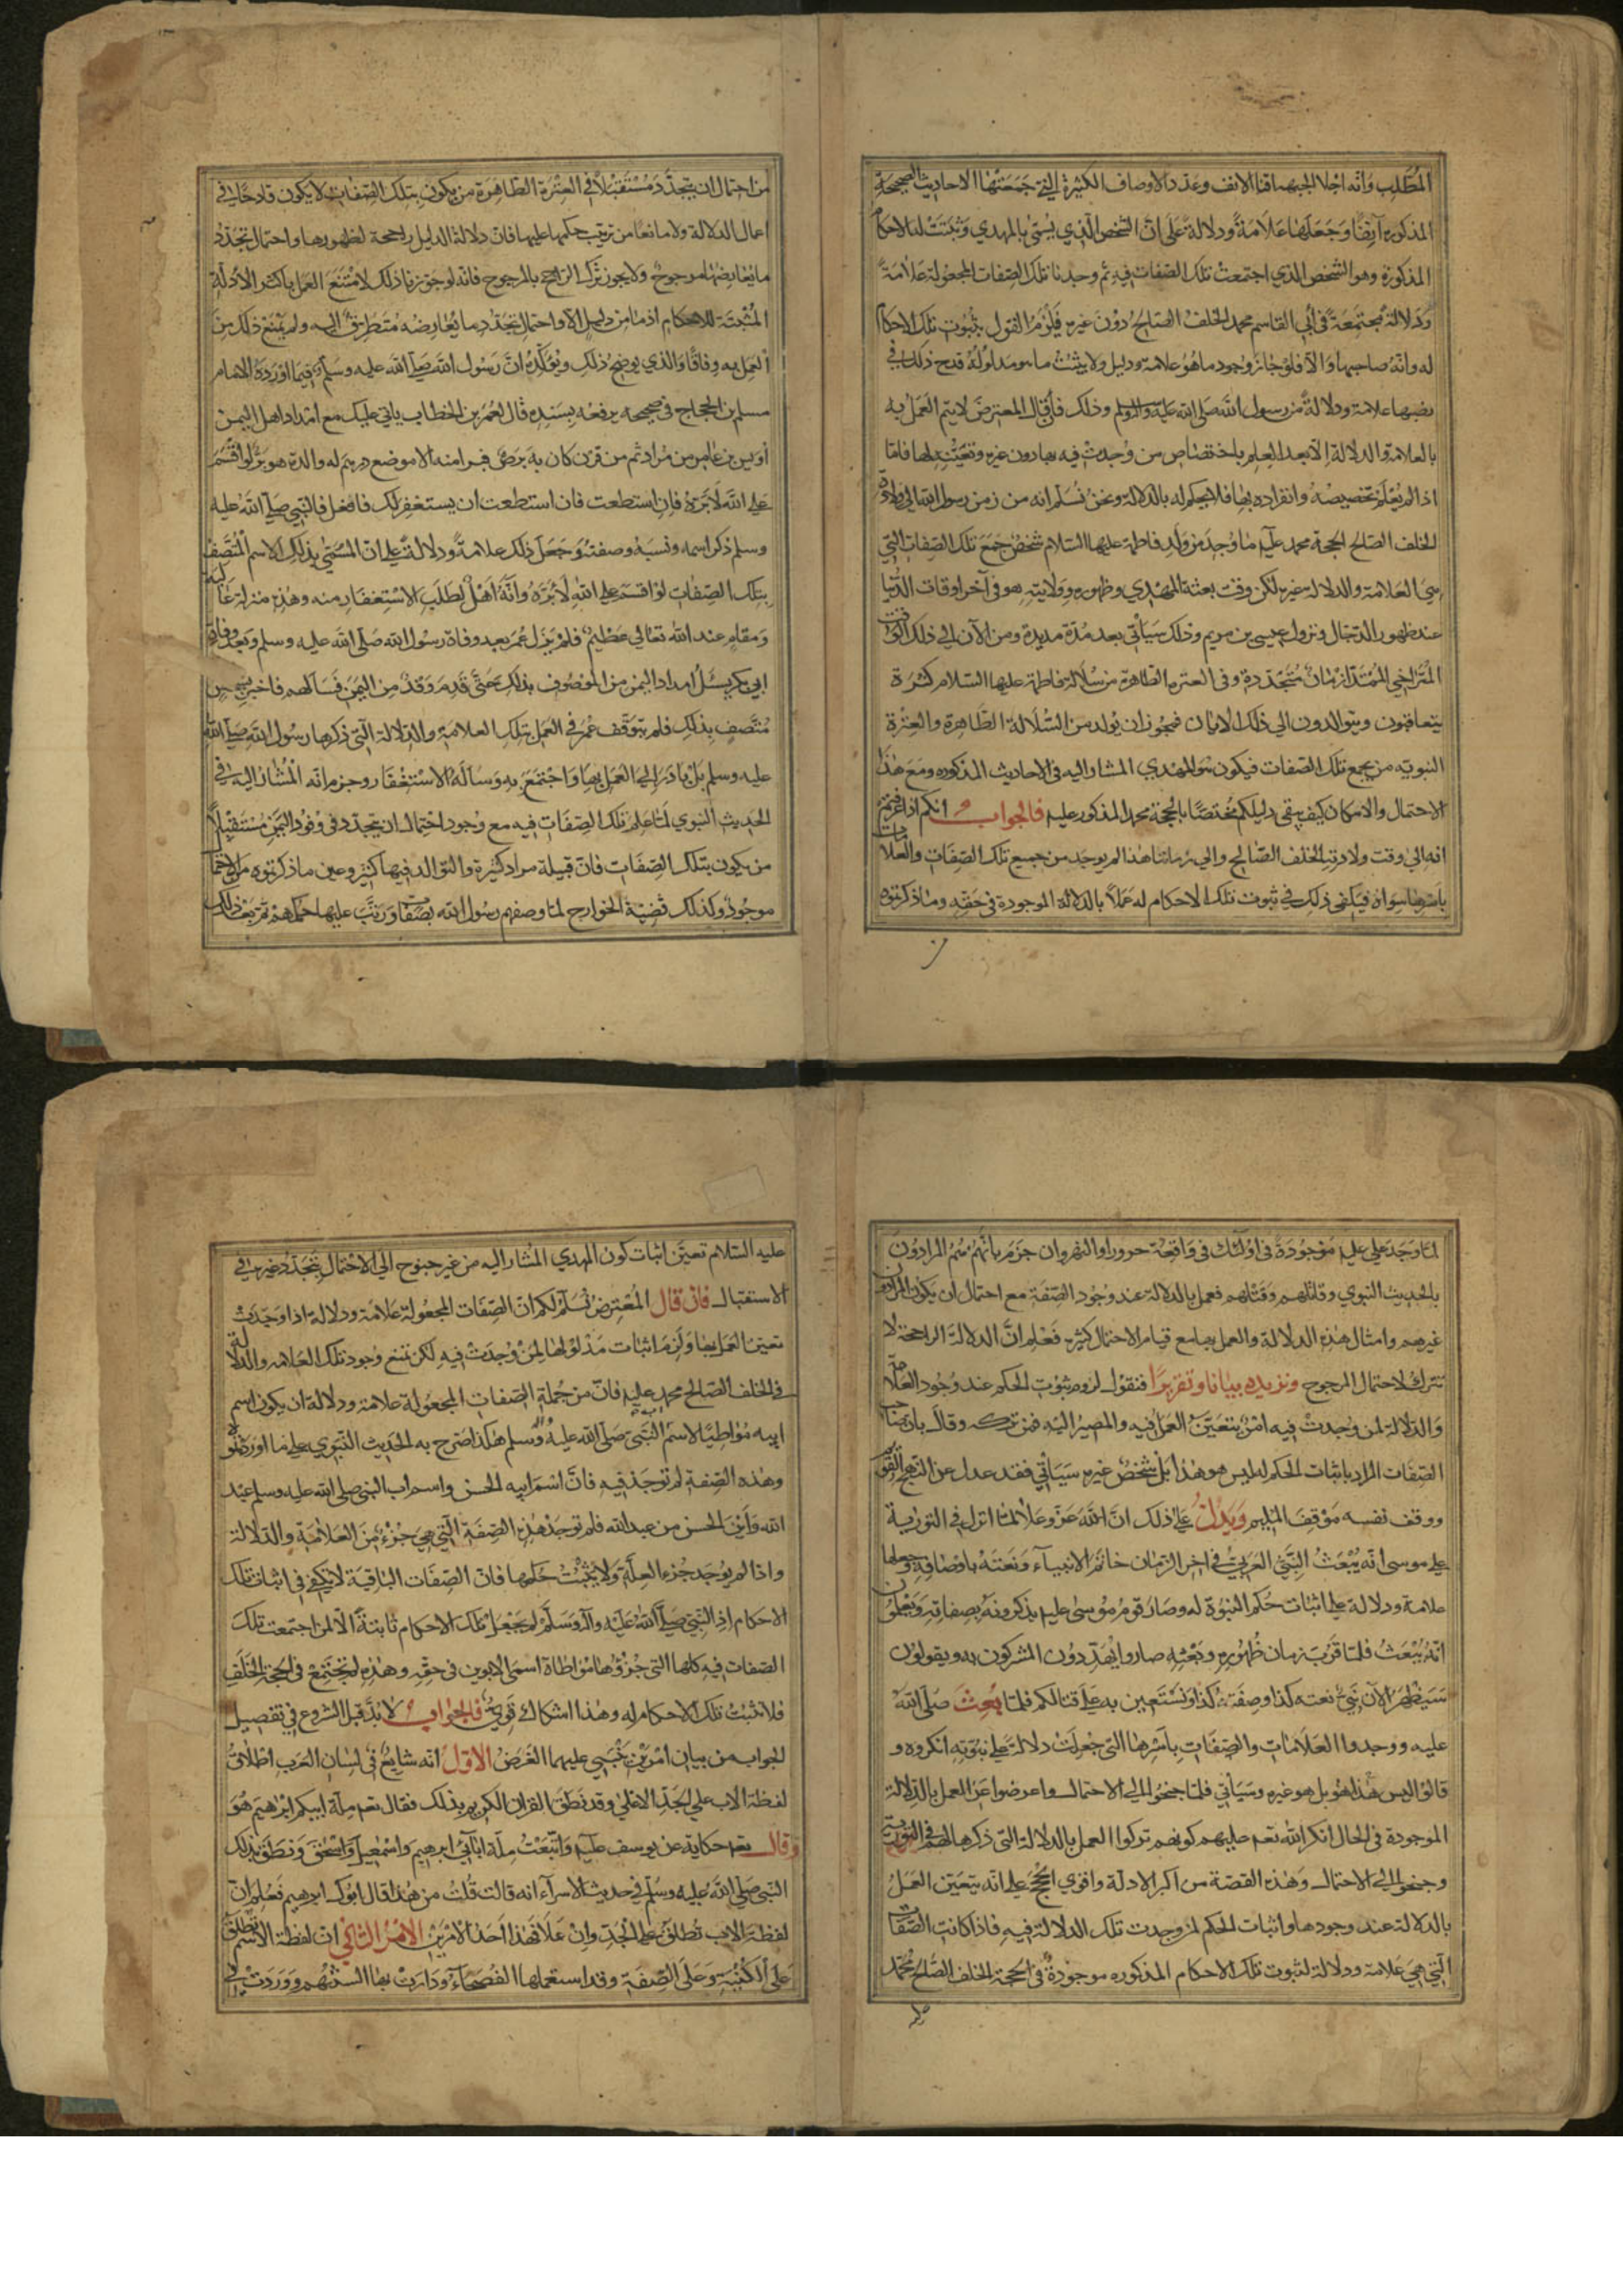 المطلب وانه اجلا الجبهة اقنا الانف وعدد الاوصاف الكثيرة التي جمعتها الاحاديث الصحيحة
المذكورة آنفا وجعلها علامة ودلالة على ان الشخص الذي يسمى بالمهدي وثبتت له الاحكام
المذكورة وهو الشخص الذي اجتمعت تلك الصفات فيه ثم وجدنا تلك الصفات المجعولة علامة
ودلالة مجتمعة في ابي القاسم محمد الخلف الصالح دون غيره فيلزم القول بثبوت تلك الاحكام
له وانه صاحبها والا فلو جاز وجود ما هو علامة ودليل ولا يثبت ما هو مدلوله قدح ذلك في
نصبها علامة ودلالة من رسول الله صلى الله عليه وآله وسلم وذلك فان قال المعترض لا يتم العمل به
بالعلامة والدلالة الا بعد العلم باختصاص من وجدت فيه بها دون غيره وتعينه لها فاما
اذا لم يعلم تخصيصه وانفراده بها فلا يحكم له بالدلالة ونحن نسلم انه من زمن رسول الله الى ولادة
الخلف الصالح الحجة محمد عليه ما وجد من ولد فاطمة عليها السلام شخص جمع تلك الصفات التي
هي العلامة والدلالة غيره لكن وقت بعثة المهدي وظهوره وولايته هو في آخر اوقات الدنيا
عند ظهور الدجال ونزول عيسى بن مريم وذلك سيأتي بعد مدة مديدة ومن الآن الى ذلك الوقت
المتراخي الممتد ازمان متجددة وفي العترة الطاهرة من سلالة فاطمة عليها السلام كثرة
يتعاقبون ويتوالدون الى ذلك الابان فيجوز ان يولد من السلالة الطاهرة والعترة
النبوية من يجمع تلك الصفات فيكون هو المهدي المشار اليه في الاحاديث المذكورة ومع هذا
الاحتمال والامكان كيف يبقى دليلكم مختصا بالحجة محمد المذكور عليه فالجواب انكم اذا عرفتم
انه الى وقت ولادة الخلف الصالح والى زماننا هذا لم يوجد من جمع تلك الصفات والعلامات
باسرها سواه فيكفي ذلك في ثبوت تلك الاحكام له عملا بالدلالة الموجودة في حقه وما ذكرتموه
من احتمال ان يتجدد مستقبلا في العترة الطاهرة من يكون بتلك الصفات لا يكون قادحا في
اعمال الدلالة ولا مانعا من ترتيب حكمها عليها فان دلالة الدليل راجحة لظهورها واحتمال تجدد
ما يعارضها مرجوح ولا يجوز ترك الراجح بالمرجوح فانه لو جوزنا ذلك لامتنع العمل باكثر الادلة
المثبتة للاحكام اذ ما من دليل الا واحتمال تجدد ما يعارضه متطرق اليه ولم يمنع ذلك من
العمل به وفاقا والذي يوضح ذلك ويؤكده ان رسول الله صلى الله عليه وسلم فيما اورده الامام
مسلم بن الحجاج في صحيحه يرفعه بسنده قال لعمر بن الخطاب ياتي عليك مع امداد اهل اليمن
اويس بن عامر من مراد ثم من قرن كان به برص فبرا منه الا موضع درهم له والدة هو بر لو اقسم
على الله لابره فان استطعت فان استطعت ان يستغفر لك فافعل فالنبي صلى الله عليه
وسلم ذكر اسمه ونسبه وصفته وجعل ذلك علامة ودلالة على ان المسمى بذلك الاسم المتصف
بتلك الصفات لو اقسم على الله لابره وانه اهل لطلب الاستغفار منه وهذه منزلة عالية
ومقام عند الله تعالى عظيم فلم يزل عمر بعد وفاة رسول الله صلى الله عليه وسلم وبعد وفاة
ابي بكر يسئل امداد اليمن من الموصوف بذلك حتى قدم وفد من اليمن فسألهم فاخبر بشخص
متصف بذلك فلم يتوقف عمر في العمل بتلك العلامة والدلالة التي ذكرها رسول الله صلى الله
عليه وسلم بل بادر الى العمل بها واجتمع به وساله الاستغفار وجزم انه المشار اليه في
الحديث النبوي لما علم تلك الصفات فيه مع وجود احتمال ان يتجدد في وفود اليمن مستقبلا
من يكون بتلك الصفات فان قبيلة مراد كثيرة والتوالد فيها كثير وعين ما ذكرتموه من الاحتمال
موجود وكذلك قضية الخوارج لما وصفهم رسول الله بصفات ورتب عليها حكمهم ثم بعد ذلك
لما وجد علي عليه موجودة في اولئك في واقعة حرورا والنهروان جزم بانهم هم المرادون
بالحديث النبوي وقاتلهم وقتلهم فعمل بالدلالة عند وجود الصفة مع احتمال ان يكون المرادون
غيرهم وامثال هذه الدلالة والعمل بها مع قيام الاحتمال كثيرة فعلم ان الدلالة الراجحة لا
تترك لاحتمال المرجوح ونزيده بيانا وتقريرا فنقول لزوم ثبوت الحكم عند وجود العلامة
والدلالة لمن وجدت فيه امر يتعين العمل فيه والمصير اليه فمن تركه وقال بان صاحب
الصفات المراد باثبات الحكم له ليس هو هذا بل شخص غيره سيأتي فقد عدل عن النهج القويم
ووقف نفسه موقف المليم ويدل على ذلك ان الله عز وعلا لما انزل في التورية
على موسى انه يبعث النبي العربي في اخر الزمان خاتم الانبياء ونعته باوصافه وجعلها
علامة ودلالة على اثبات حكم النبوة له وصار قوم موسى عليه يذكرونه بصفاته ويعلمون
انه يبعث فلما قرب زمان ظهوره وبعثه صاروا يهددون المشركون به ويقولون
سيظهر الآن نبي نعته كذا وصفته كذا ونستعين به على قتالكم فلما بعث صلى الله
عليه ووجدوا العلامات والصفات باسرها التي جعلت دلالة على نبوته انكروه و
قالوا ليس هذا هو بل هو غيره وسيأتي فلما جنحوا الى الاحتمال واعرضوا عن العمل بالدلالة
الموجودة في الحال انكر الله تعم عليهم كونهم تركوا العمل بالدلالة التي ذكرها لهم في التورية
وجنحوا الى الاحتمال وهذه القصة من اكبر الادلة واقوى الحجج على انه يتعين العمل
بالدلالة عند وجودها واثبات الحكم لمن وجدت تلك الدلالة فيه فاذا كانت الصفات
التي هي علامة ودلالة لثبوت تلك الاحكام المذكورة موجودة في الحجة الخلف الصالح محمد
عليه السلام تعين اثبات كون المهدي المشار اليه من غير جنوح الى الاحتمال بتجدد غيره في
الاستقبال فان قال المعترض نسلم لكم ان الصفات المجعولة علامة ودلالة اذا وجدت
تعين العمل بها ولزم اثبات مدلولها لمن وجدت فيه لكن نمنع وجود تلك العلامة والدلالة
في الخلف الصالح محمد عليه فان من جملة الصفات المجعولة علامة ودلالة ان يكون اسم
ابيه مواطيا لاسم اب النبي صلى الله عليه وآله وسلم هكذا صرح به الحديث النبوي على ما اوردتموه
وهذه الصفة لم توجد فيه فان اسم ابيه الحسن واسم اب النبي صلى الله عليه وسلم عبد
الله واين الحسن من عبد الله فلم توجد هذه الصفة التي هي جزء من العلامة والدلالة
واذا لم يوجد جزء العلة ولا يثبت حكمها فان الصفات الباقية لا تكفي في اثبات تلك
الاحكام اذ النبي صلى الله عليه وآله وسلم لم يجعل تلك الاحكام ثابتة الا لمن اجتمعت تلك
الصفات فيه كلها التي جزؤها مواطاة اسمي الابوين في حقه وهذه لم تجتمع في الحجة الخلف
فلا تثبت تلك الاحكام له وهذا اشكال قوي فالجواب لا بد قبل الشروع في تفصيل
الجواب من بيان امرين يبتنى عليهما الغرض الاول انه شايع في لسان العرب اطلاق
لفظة الاب على الجد الاعلى وقد نطق القران الكريم بذلك فقال تعم ملة ابيكم ابرهيم هو
وقال تعم حكاية عن يوسف عليه واتبعت ملة ابائي ابرهيم واسمعيل واسحق ونطق بذلك
النبي صلى الله عليه وسلم في حديث الاسراء انه قالت قلت من هذا قال ابوك ابرهيم فعلم ان
لفظة الاب تطلق على الجد وان علا فهذا احد الامرين الامر الثاني ان لفظة الاسم تطلق
على الكنية وعلى الصفة وقد استعملها الفصحاء ودارت بها السنتهم ووردت في